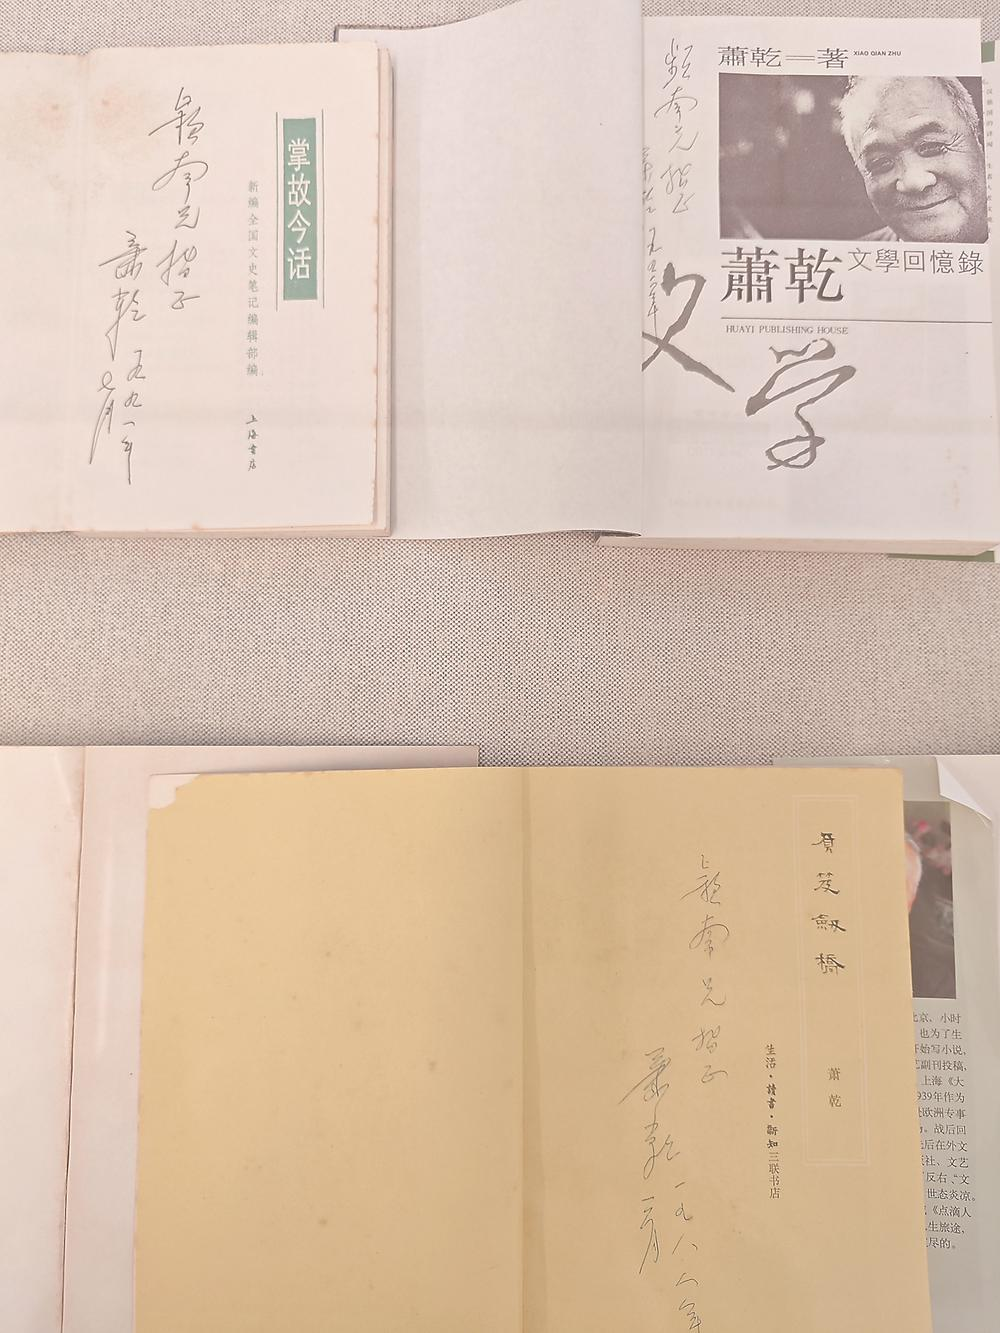 掌故今话
新编全国文史笔记编辑部编
上海书店
南兄指正
萧乾
一九九一年
七月
蕭乾——著
XIAO QIAN ZHU
南兄指正
蕭乾
文學回憶錄
HUAYI PUBLISHING HOUSE
文学
負笈劍橋
萧乾
生活·讀書·新知三联书店
南兄指正
萧乾
一九八八年
北京、小时
也为了生
开始写小说,
艺副刊投稿,
上海《大
1939年作为
赴欧洲专事
战后回
先后在外文
版社、文艺
反右、“文
世态炎凉。
《点滴人
人生旅途,
尽的。